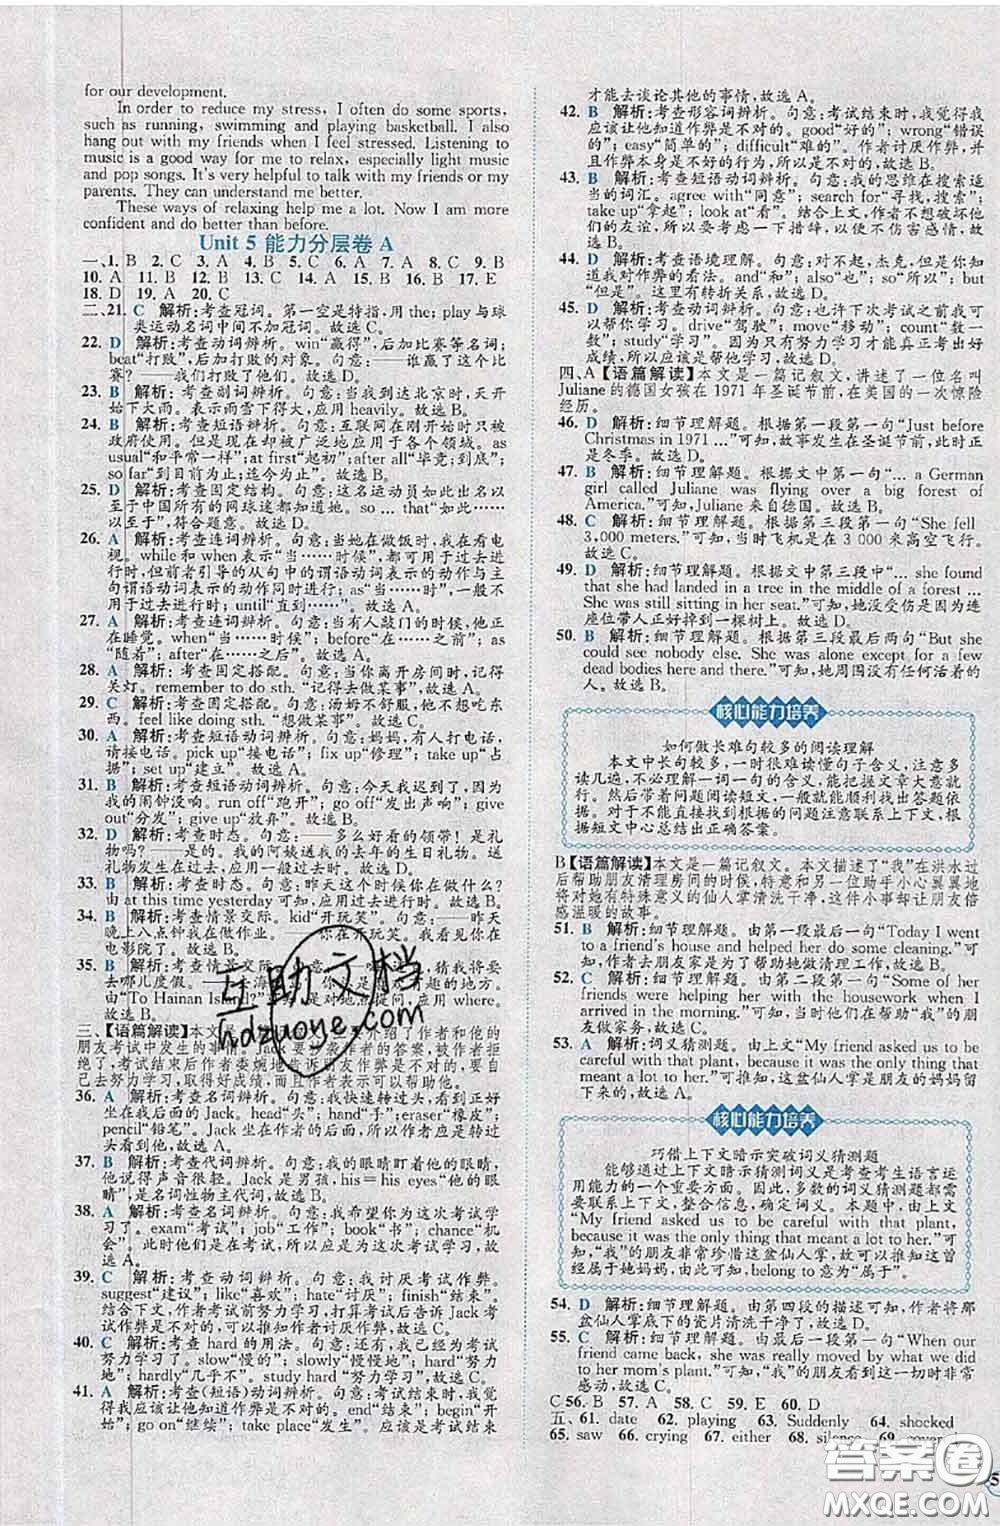 for our development.
In order to reduce my stress, I often do some sports,
such as running, swimming and playing basketball. I also
hang out with my friends when I feel stressed. Listening to
music is a good way for me to relax, especially light music
and pop songs. It's very helpful to talk with my friends or my
parents. They can understand me better.
These ways of relaxing help me a lot. Now I am more
confident and do better than before.
Unit 5 能力分层卷 A
一、1. B 2. C 3. A 4. B 5. C 6. A 7. A 8. C 9. B
10. A 11. B 12. C 13. A 14. B 15. A 16. B 17. E
18. D 19. A 20. C
二、21. C 解析:考查冠词。第一空是特指,用 the; play 与球
类运动名词中间不加冠词。故选 C。
22. D 解析:考查动词辨析。win“赢得”,后加比赛等名词;
beat“打败”,后加打败的对象。句意:——谁赢了这个比
赛? ——我们打败了他们。故选 D。
23. B 解析:考查副词辨析。句意:当昨天比赛刚刚开始时
开始下大雨。表示雨下得大,应用 heavily。故选 B。
24. B 解析:考查短语辨析。句意:互联网在刚开始时只被
政府使用。但是却被广泛地应用于各个领域。as
usual“和平常一样”;at first“起初”;after all“毕竟;到底”;
so far“到目前为止;迄今为止”。故选 B。
25. D 解析:考查固定结构。句意:这名运动员如此成功以
至于中国所有的网球迷都知道她。so ... that“如此……
以至于”,符合题意。故选 D。
26. A 解析:考查连词辨析。句意:当她在做饭时,我在看电
视。while 和 when 表示“当……时候”,都可用于过去进
行时,但前者引导的从句中的谓语动词表示的动作与主
句谓语动词表示的动作同时进行;as“当……时”,一般不
用于过去进行时;until“直到……”。故选 A。
27. A 解析:考查连词辨析。句意:当有人敲门的时候,他正
在睡觉。when“当……时候”;before“在……之前”;as
“随着”;after“在……之后”。故选 A。
28. A 解析:考查固定搭配。句意:当你离开房间时,记得
关灯。remember to do sth.“记得去做某事”。故选 A。
29. C 解析:考查固定搭配。句意:汤姆不舒服,他不想吃东
西。feel like doing sth.“想做某事”。故选 C。
30. A 解析:考查短语辨析。句意:妈妈,有人打电话,
请接电话。pick up“接电话”;fix up“修理”;take up“占
据”;set up“建立”。故选 A。
31. C 解析:考查短语动词辨析。句意:今天我迟到了,因为
我的闹钟没响。run off“跑开”;go off“发出声响”;give
out“分发”;give up“放弃”。故选 C。
32. D 解析:考查时态。句意:——多么好看的领带!是礼
物吗? ——是的。我的阿姨送我的去年的生日礼物。送
礼物发生在过去,应用一般过去时。故选 D。
33. B 解析:考查时态。句意:昨天这个时候你在做什么?
由 at this time yesterday 可知,应用过去进行时。故选 B。
34. B 解析:考查情景交际。kid“开玩笑”。句意:——昨天
晚上八点钟我在做作业。——你在开玩笑吧。我看见你在
电影院了。故选 B。
三、【语篇解读】
朋友考试中发生的事情。Jack 要抄袭作者的答案,被作者拒
绝了,考试结束后作者委婉地告诉朋友,要靠自己
去努力学习,取得好成绩,而且表示可以帮助他。
36. A 解析:考查名词辨析。句意:我快速转过头,看到正好
坐在我后面的 Jack。head“头”;hand“手”;eraser“橡皮”;
pencil“铅笔”。Jack 坐在作者的后面,所以作者要转过头
看到他,故选 A。
37. B 解析:考查代词辨析。句意:我的眼睛盯着他的眼睛,
他说话声音很轻。
是名词性物主代词。故选 B。
38. A 解析:考查名词辨析。句意:我希望你为这次考试学
习了。exam“考试”;job“工作”;book“书”;chance“机
会”。此时是他们在考试,所以是为这次考试学习,故
选 A。
39. C 解析:考查动词辨析。句意:我讨厌考试作弊。
suggest“建议”;like“喜欢”;hate“讨厌”;finish“结束”。
结合下文,作者考试前努力学习,打算考试后告诉 Jack
作弊是不对的,可以推知作者讨厌作弊,故选 C。
40. C 解析:考查 hard 的用法。句意:我为了这个考试一直
努力学习。slow“慢的”;slowly“慢慢地”;hard“努力
地”;hardly“几乎不”。study hard“努力学习”。故选 C。
41. A 解析:考查(短语)动词辨析。句意:考试结束时,我觉得
我应该让他知道作弊是不好的。end“结束”;begin“开
始”;go on“继续”;take place“发生”。应该是考试结束
才能去谈论其他的事情,故选 A。
42. B 解析:考查形容词辨析。句意:考试结束时,我觉得我
应该让他知道作弊是不对的。good“好的”;wrong“错误
的”;easy“简单的”;difficult“难的”。作者讨厌作弊,并
且作弊本身是不好的行为,所以是不对的,故选 B。
43. B 解析:考查短语动词辨析。句意:我的思维在搜索适
当的词汇。agree with“同意”;search for“寻找,搜索”;
take up“拿起”;look at“看”。结合上文,作者不想伤害他
们的友谊,所以作者在寻找适当的词汇,故选 B。
44. D 解析:考查语境理解。句意:对不起,杰克。但是我想告诉
你我对作弊的看法。and“和”;also“也”;so“所以”;but
“但是”。这里有转折关系,故选 D。
45. D 解析:考查动词辨析。句意:也许下次考试之前我可
以帮你学习。drive“驾驶”;move“移动”;count“数一
数”;study“学习”。因为只有努力学习才能真正考出好
成绩,所以应该是帮他学习。故选 D。
四、A【语篇解读】本文是一篇记叙文,讲述了一位名叫
Juliane 的德国女孩在 1971 年圣诞节前,在美国的一次惊险
经历。
46. D 解析:细节理解题。根据文中第一句“Just before
Christmas in 1971 ...”可知,故事发生在圣诞节前,此时正
是冬季。故选 D。
47. B 解析:细节理解题。根据文中第一句“... a German
girl called Juliane was flying over a big forest of
America.”可知,Juliane 来自德国。故选 B。
48. C 解析:细节理解题。根据第三段第一句“She fell
3,000 meters.”可知,当时飞机是在 3 000 米高空飞行。
故选 C。
49. D 解析:细节理解题。根据文中第三段中“... she found
that she had landed in a tree in the middle of a forest ...
She was still sitting in her seat.”可知,她没受伤是因为连
座位带人正好掉到一棵树上。故选 D。
50. B 解析:细节理解题。根据第三段最后一句“But she
could see nobody else. She was alone except for a few
dead bodies here and there.”可知,她周围没有任何活着的
人。故选 B。
核心能力培养
如何做长难句较多的阅读理解
本文中长句较多,一时很难读懂句子含义,注意多
读几遍,不必理解一词一句的含义,能把握文章大意就
行。然后带着问题阅读短文,一般就能顺利找出答案依
据。对于不能直接找到根据的问题注意联系上下文,根
据短文中心总结出正确答案。
B【语篇解读】本文是一篇记叙文。本文描述了“我”在洪水过
后帮助朋友清理房间的时候,特意和另一位助手小心翼翼地
将对她有特殊意义的仙人掌清洗干净,这件小事却让朋友倍
感温暖的故事。
51. B 解析:细节理解题。由第一段第一句“Today I went
to a friend's house and helped her do some cleaning.”可
知,我去朋友家是为了帮助她做清理工作。故选 B。
52. C 解析:细节理解题。由第二段第一句“Some of her
friends were helping her with the housework when I
arrived in the morning.”可知,当我到的时候,“我”的朋
友们在做家务。故选 C。
53. A 解析:词义猜测题。由上文“My friend asked us to be
careful with that plant, because it was the only thing that
meant a lot to her.”可推知,这盆仙人掌是朋友的妈妈留
下来的。故选 A。
核心能力培养
巧借上下文暗示突破词义猜测题
能够通过上下文暗示猜测词义是考查考生语言运
用能力的一个重要方面。因此,多数的词义猜测题都需
要联系上下文,整合信息,确定词义。本题中,由上文
“My friend asked us to be careful with that plant,
because it was the only thing that meant a lot to her.”可
知,“我”的朋友非常珍惜这盆仙人掌,可以推知这曾经
属于她妈妈,由此可知,belong to 意为“属于”。
54. D 解析:细节理解题。由第四段的描述可知,作者将那
盆仙人掌底下的瓷片清洗干净了。故选 D。
55. C 解析:细节理解题。由最后一段第一句“When our
friend came back, she was really moved by what we did to
her mom's plant.”可知,“我”的朋友看到这一幕时非常
感动,故选 C。
C 56. B 57. A 58. C 59. E 60. D
五、61. date 62. playing 63. Suddenly 64. shocked
65. saw 66. crying 67. either 68. silence 69.
互助文档
hdzuoye.com
答案圈
MXQE.COM